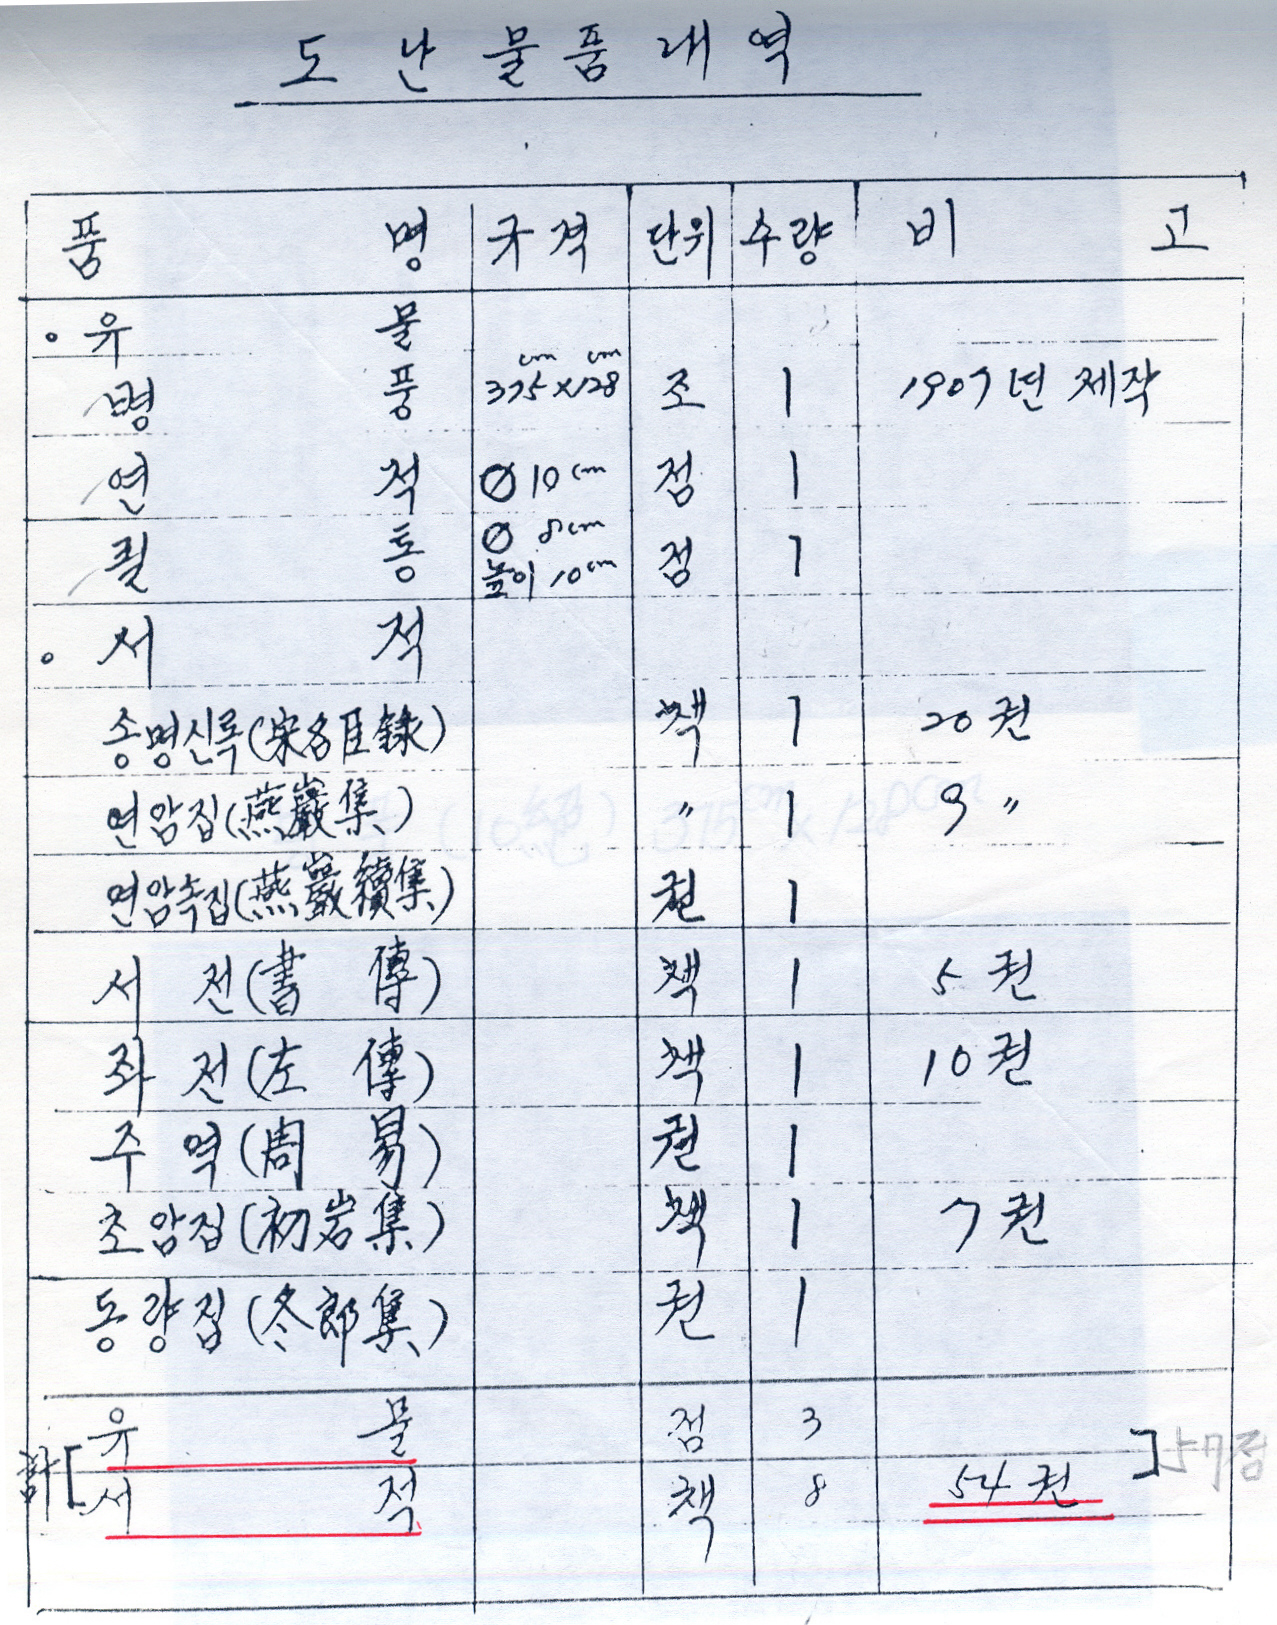 도 난 물 품 내 역
품 명 규격 단위 수량 비 고
• 유 물
병 풍 375cm×128cm 조 1 1907년 제작
연 적 Ø10cm 점 1
필 통 Ø 8cm 높이 10cm 점 1
• 서 적
송명신록(宋名臣錄) 책 1 20권
연암집(燕巖集) 〃 1 9 〃
연암속집(燕巖續集) 권 1
서 전(書 傳) 책 1 5권
좌 전(左 傳) 책 1 10권
주 역(周 易) 권 1
초암집(初岩集) 책 1 7권
동랑집(冬郎集) 권 1
유 물 점 3
計[ ]57점
서 적 책 8 54권